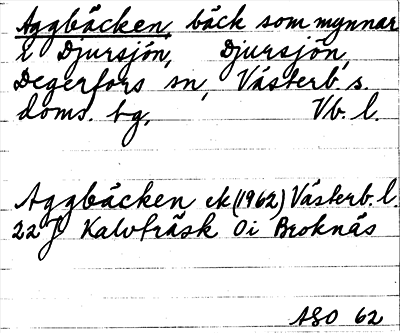 Aggbäcken, bäck som mynnar
i Djursjön, Djursjön,
Degerfors sn, Västerb. s.
doms. bg, Vb. l.
Aggbäcken ek (1962) Västerb. l.
22 J Kalvträsk 0i Broknäs
ASO 62